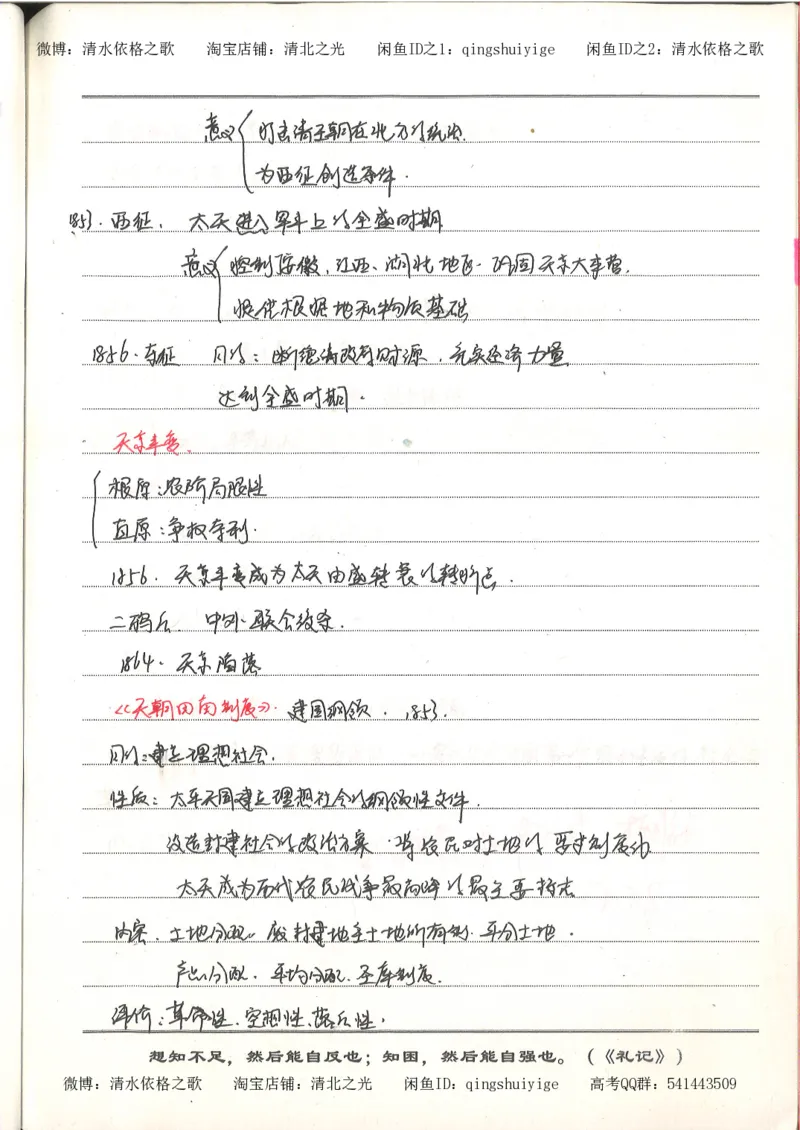 微博：清水依格之歌 淘宝店铺：清北之光 闲鱼ID之1：qingshuiyige 闲鱼ID之2：清水依格之歌
意义 打击清王朝在北方的统治.
为西征创造条件.
1853. 西征. 太天进入军斗上的全盛时期
意义 控制安徽、江西、湖北地区. 巩固天京大本营.
提供根据地和物质基础
1856. 东征 目的：断绝清政府财源，充实经济力量
达到全盛时期.
天京事变.
根原：农阶局限性
直原：争权夺利.
1856. 天京事变成为太天由盛转衰的转折点.
二鸦后. 中外联合绞杀.
1864. 天京陷落
《天朝田亩制度》. 建国纲领. 1853.
目的：建立理想社会.
性质：太平天国建立理想社会的纲领性文件.
改造封建社会的政治方案. 将农民对土地的要求制度化
太天成为历代农民战争最高峰的最主要标志
内容. 土地分配. 废封建地主土地所有制. 平分土地.
产品分配. 平均分配. 圣库制度.
评价：革命性. 空想性. 落后性.
想知不足，然后能自反也；知困，然后能自强也。（《礼记》）
微博：清水依格之歌 淘宝店铺：清北之光 闲鱼ID：qingshuiyige 高考QQ群：541443509